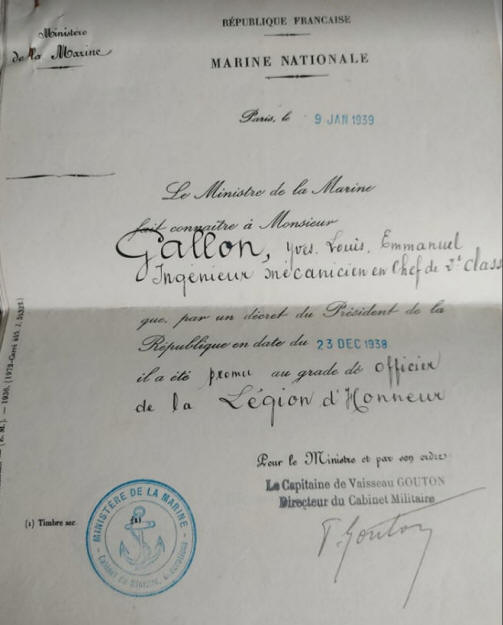 Ministère
de la Marine
RÉPUBLIQUE FRANCAISE
MARINE NATIONALE
Paris, le 9 JAN 1939
Le Ministre de la Marine
fait connaître à Monsieur
Gallon, Yves. Louis. Emmanuel
Ingénieur mécanicien en Chef de 2e class
que, par un décret du Président de la
République en date du 23 DEC 1938
il a été promu au grade de officier
de la Légion d'Honneur
Pour le Ministre et par son ordre
Le Capitaine de Vaisseau GOUTON
Directeur du Cabinet Militaire
(1) Timbre sec
MINISTÈRE DE LA MARINE
Cabinet du Ministre
T. Gouton